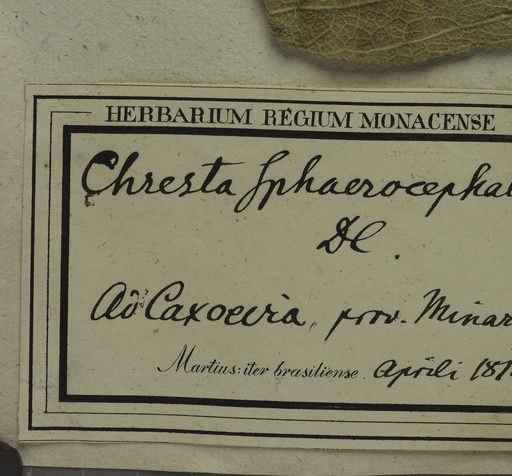 HERBARIUM REGIUM MONACENSE
Chresta sphaerocephal
DC.
Ad Caxoeira, prov. Minar
Martius: iter brasiliense. Aprili 181